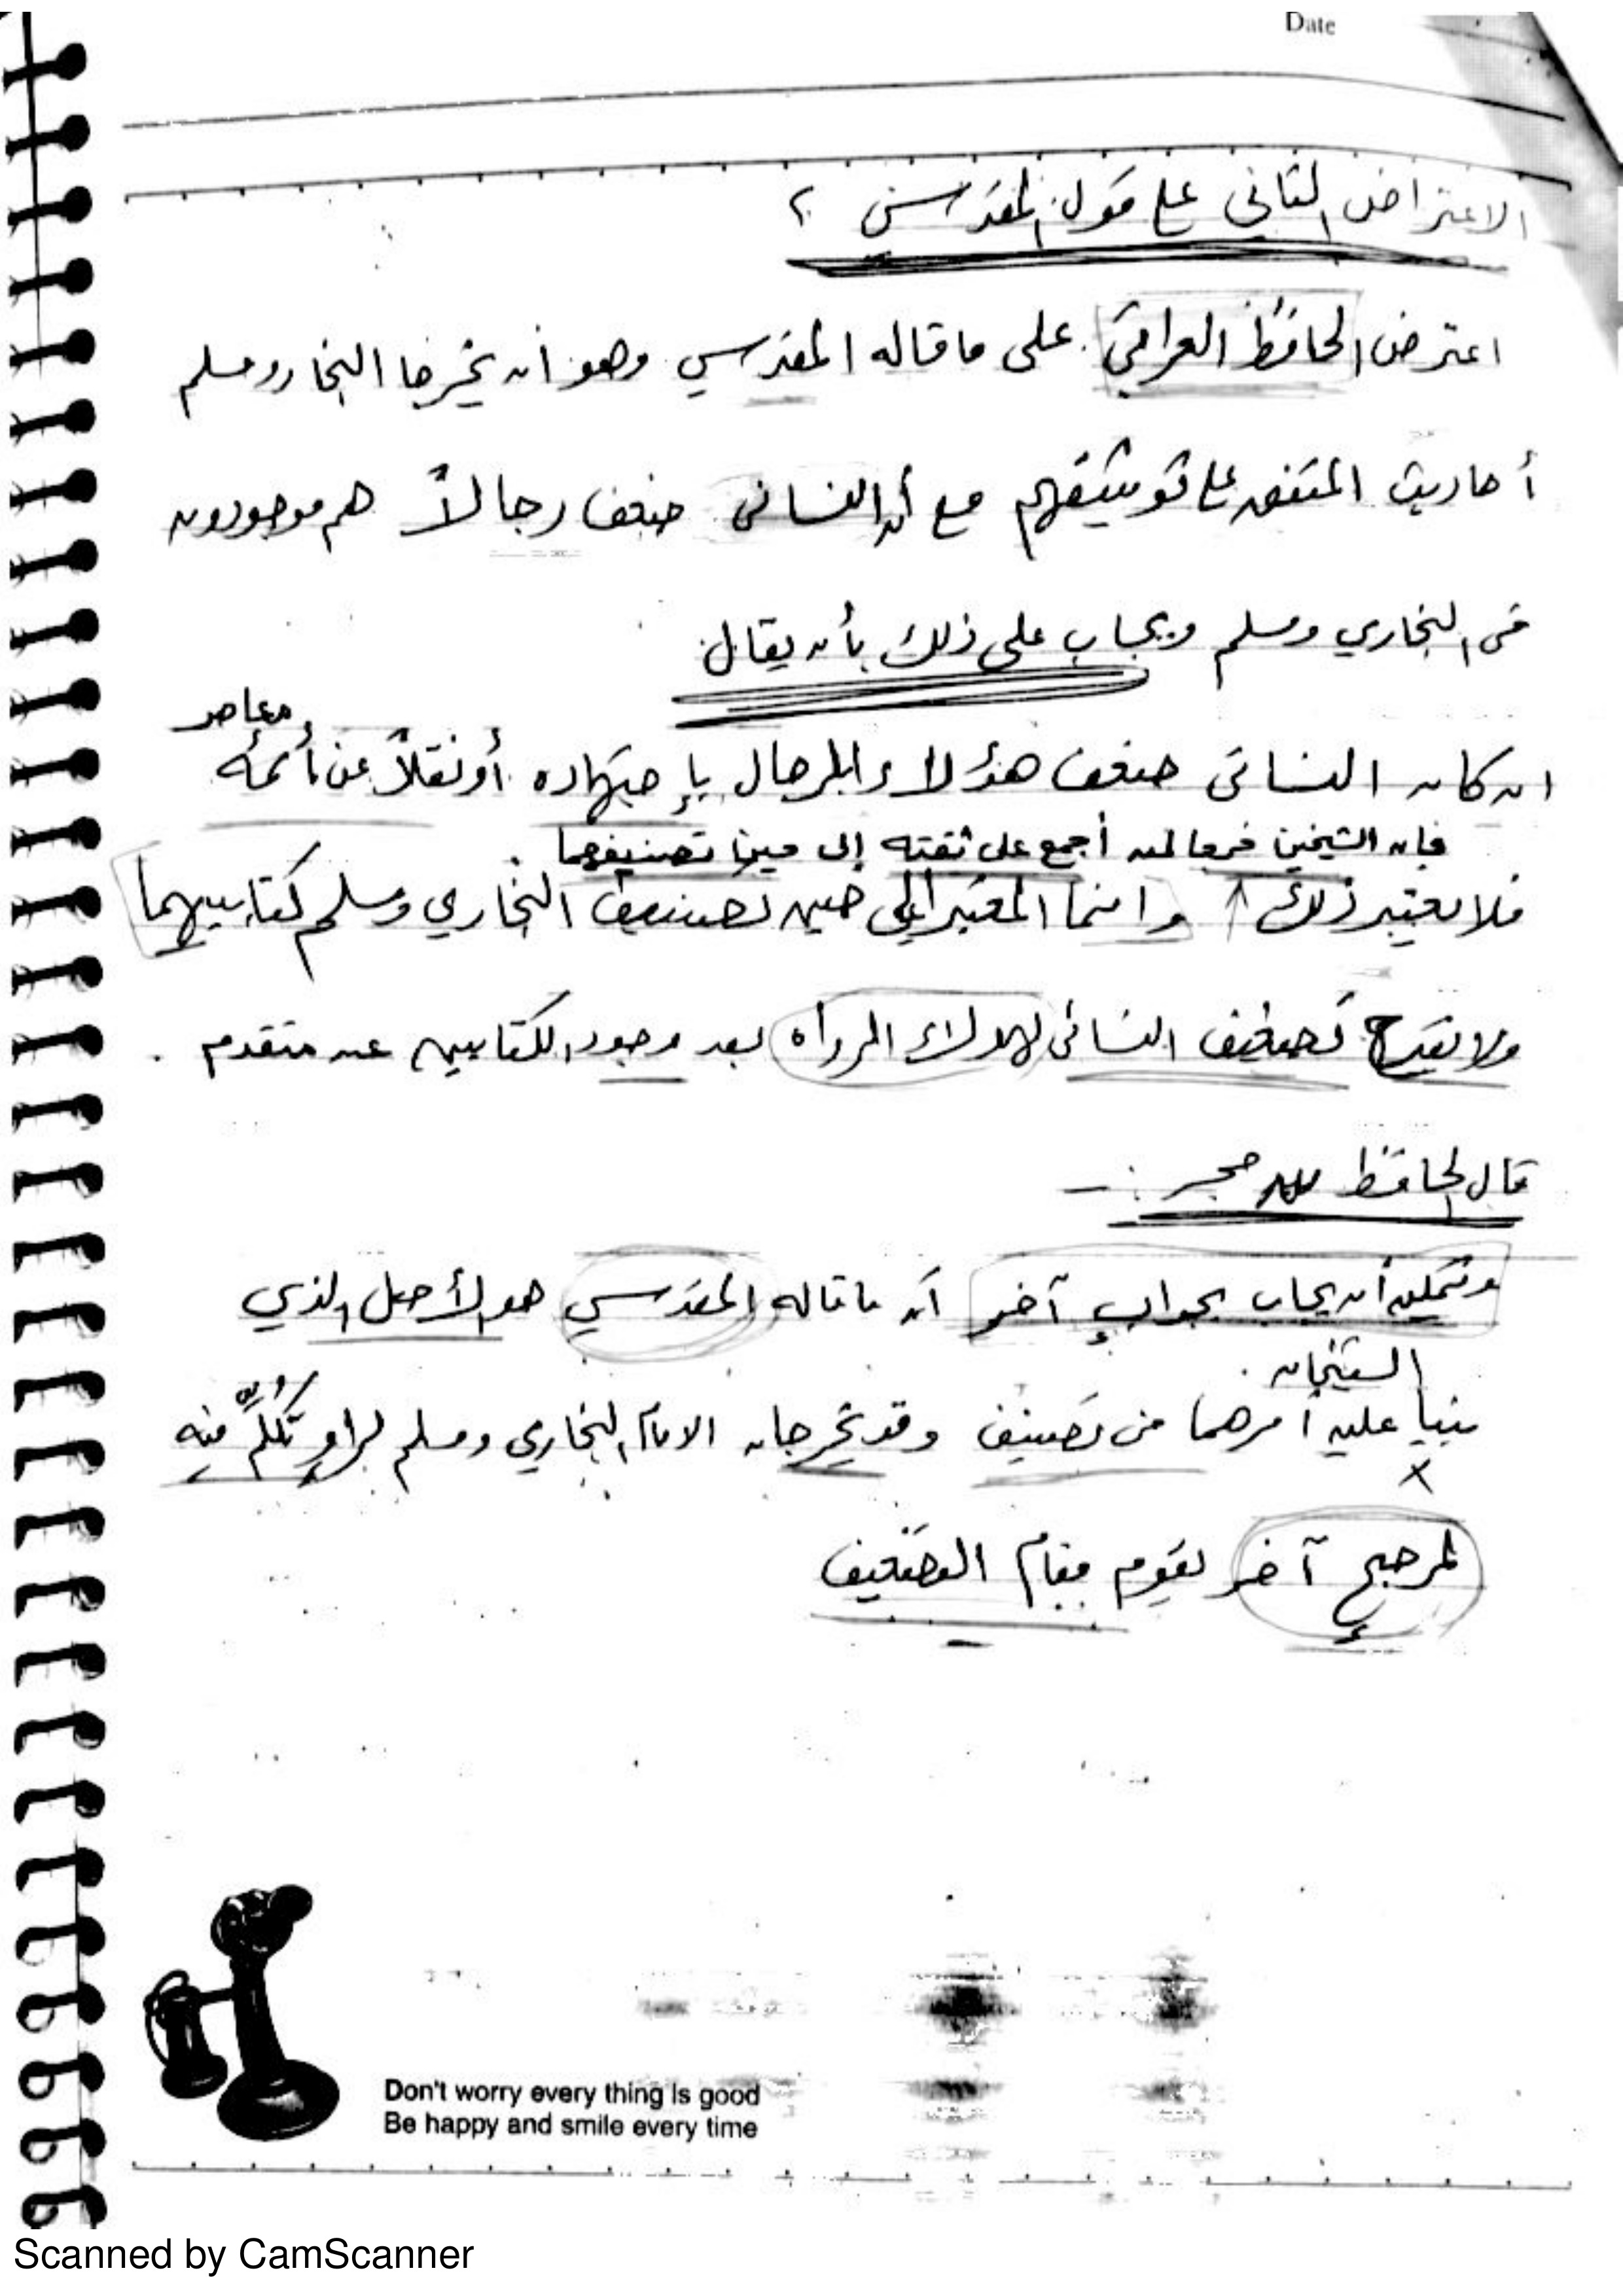 Date
الاعتراض الثاني على قول المقدسي ؟
اعترض الحافظ العراقي على ما قاله المقدسي وهو أن يخرجا البخاري ومسلم
أحاديث المتفق على توثيقهم مع أن النسائي ضعف رجالاً هم موجودون
في البخاري ومسلم ويجاب على ذلك بأن يقال
معاصر
ان كان النسائي ضعف هؤلاء الرجال بإجتهاده أو نقلاً عن أئمة
فإن الشيخين خرجا لمن أجمع على ثقته إلى حين تصنيفهما
فلا يعتبر ذلك وانما المعتبر إلى حين تصنيف البخاري ومسلم كتابيهما
ولا يقدح تضعيف النسائي لهؤلاء الرواه بعد وجود الكتابين عند متقدم .
قال الحافظ ابن حجر :-
ويمكن أن يجاب بجوابٍ آخر أن ما قاله المقدسي هو الأصل الذي
الشيخان
بنيا عليه أمرهما من تصنيف وقد يخرجان الامام البخاري ومسلم لراوٍ تُكُلِّم فيه
لمرجحٍ آخر يقوم مقام التضعيف
Don't worry every thing is good
Be happy and smile every time
Scanned by CamScanner